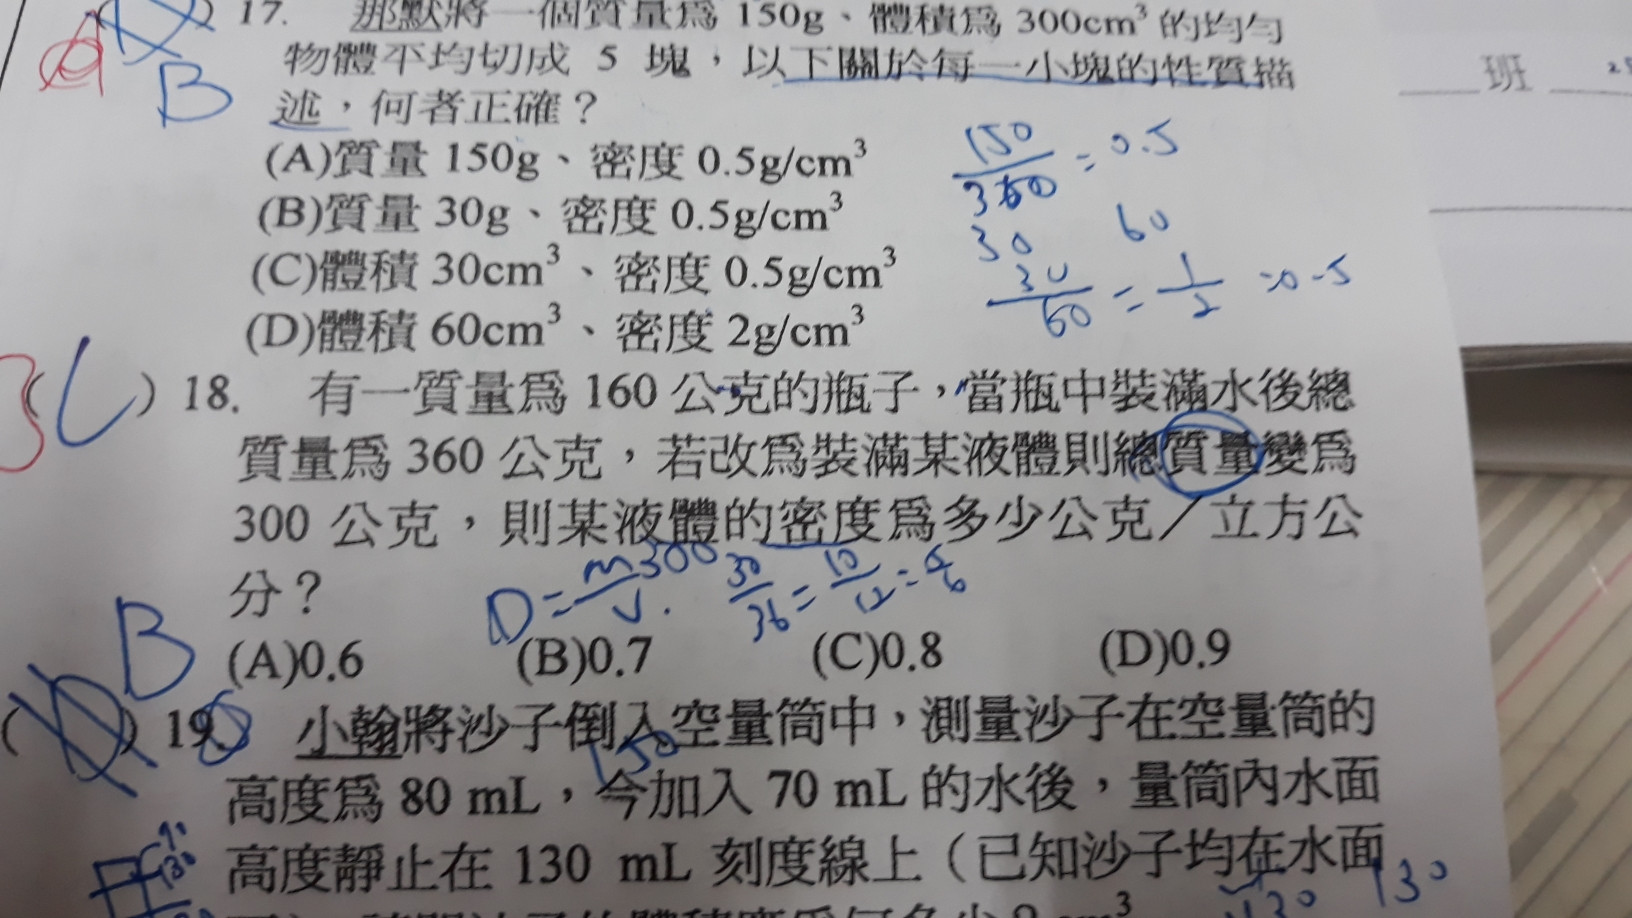 17. 那默將一個質量爲 150g、體積爲 300cm³ 的均勻
物體平均切成 5 塊，以下關於每一小塊的性質描
述，何者正確？
B
班
(A)質量 150g、密度 0.5g/cm³
(B)質量 30g、密度 0.5g/cm³
(C)體積 30cm³、密度 0.5g/cm³
(D)體積 60cm³、密度 2g/cm³
150/300 = 0.5
30 60
30/60 = 1/2 = 0.5
( C ) 18. 有一質量爲 160 公克的瓶子，當瓶中裝滿水後總
質量爲 360 公克，若改爲裝滿某液體則總質量變爲
300 公克，則某液體的密度爲多少公克／立方公
分？
D = m/V 300 30/36 = 10/12 =
(A)0.6 (B)0.7 (C)0.8 (D)0.9
B
( ) 19. 小翰將沙子倒入空量筒中，測量沙子在空量筒的
150
高度爲 80 mL，今加入 70 mL 的水後，量筒內水面
高度靜止在 130 mL 刻度線上（已知沙子均在水面
130
130